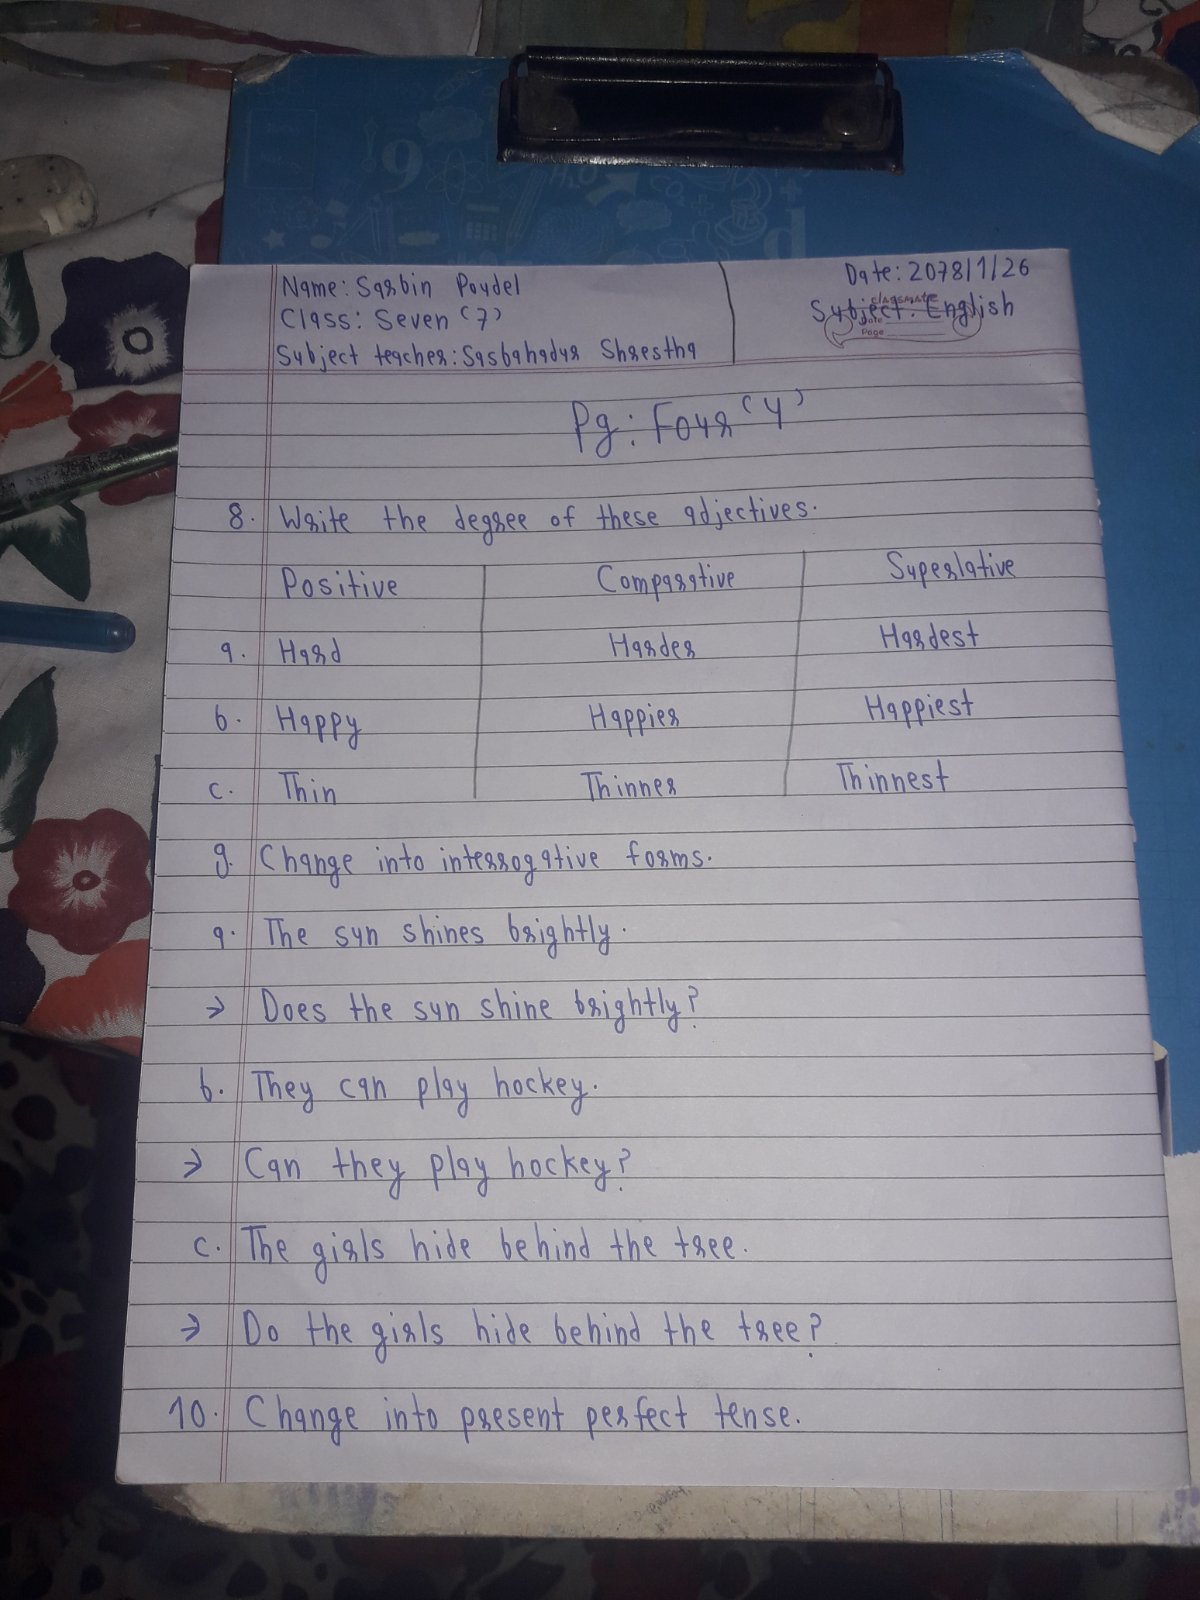 Name: Sarbin Poudel
Date: 2078/1/26
Class: Seven (7)
Subject: English
classmate
Date
Page
Subject teacher: Sarbahadur Shrestha
Pg: Four (4)
8. Write the degree of these adjectives.
Positive Comparative Superlative
a. Hard Harder Hardest
b. Happy Happier Happiest
c. Thin Thinner Thinnest
9. Change into interrogative forms.
a. The sun shines brightly.
→ Does the sun shine brightly?
b. They can play hockey.
→ Can they play hockey?
c. The girls hide behind the tree.
→ Do the girls hide behind the tree?
10. Change into present perfect tense.